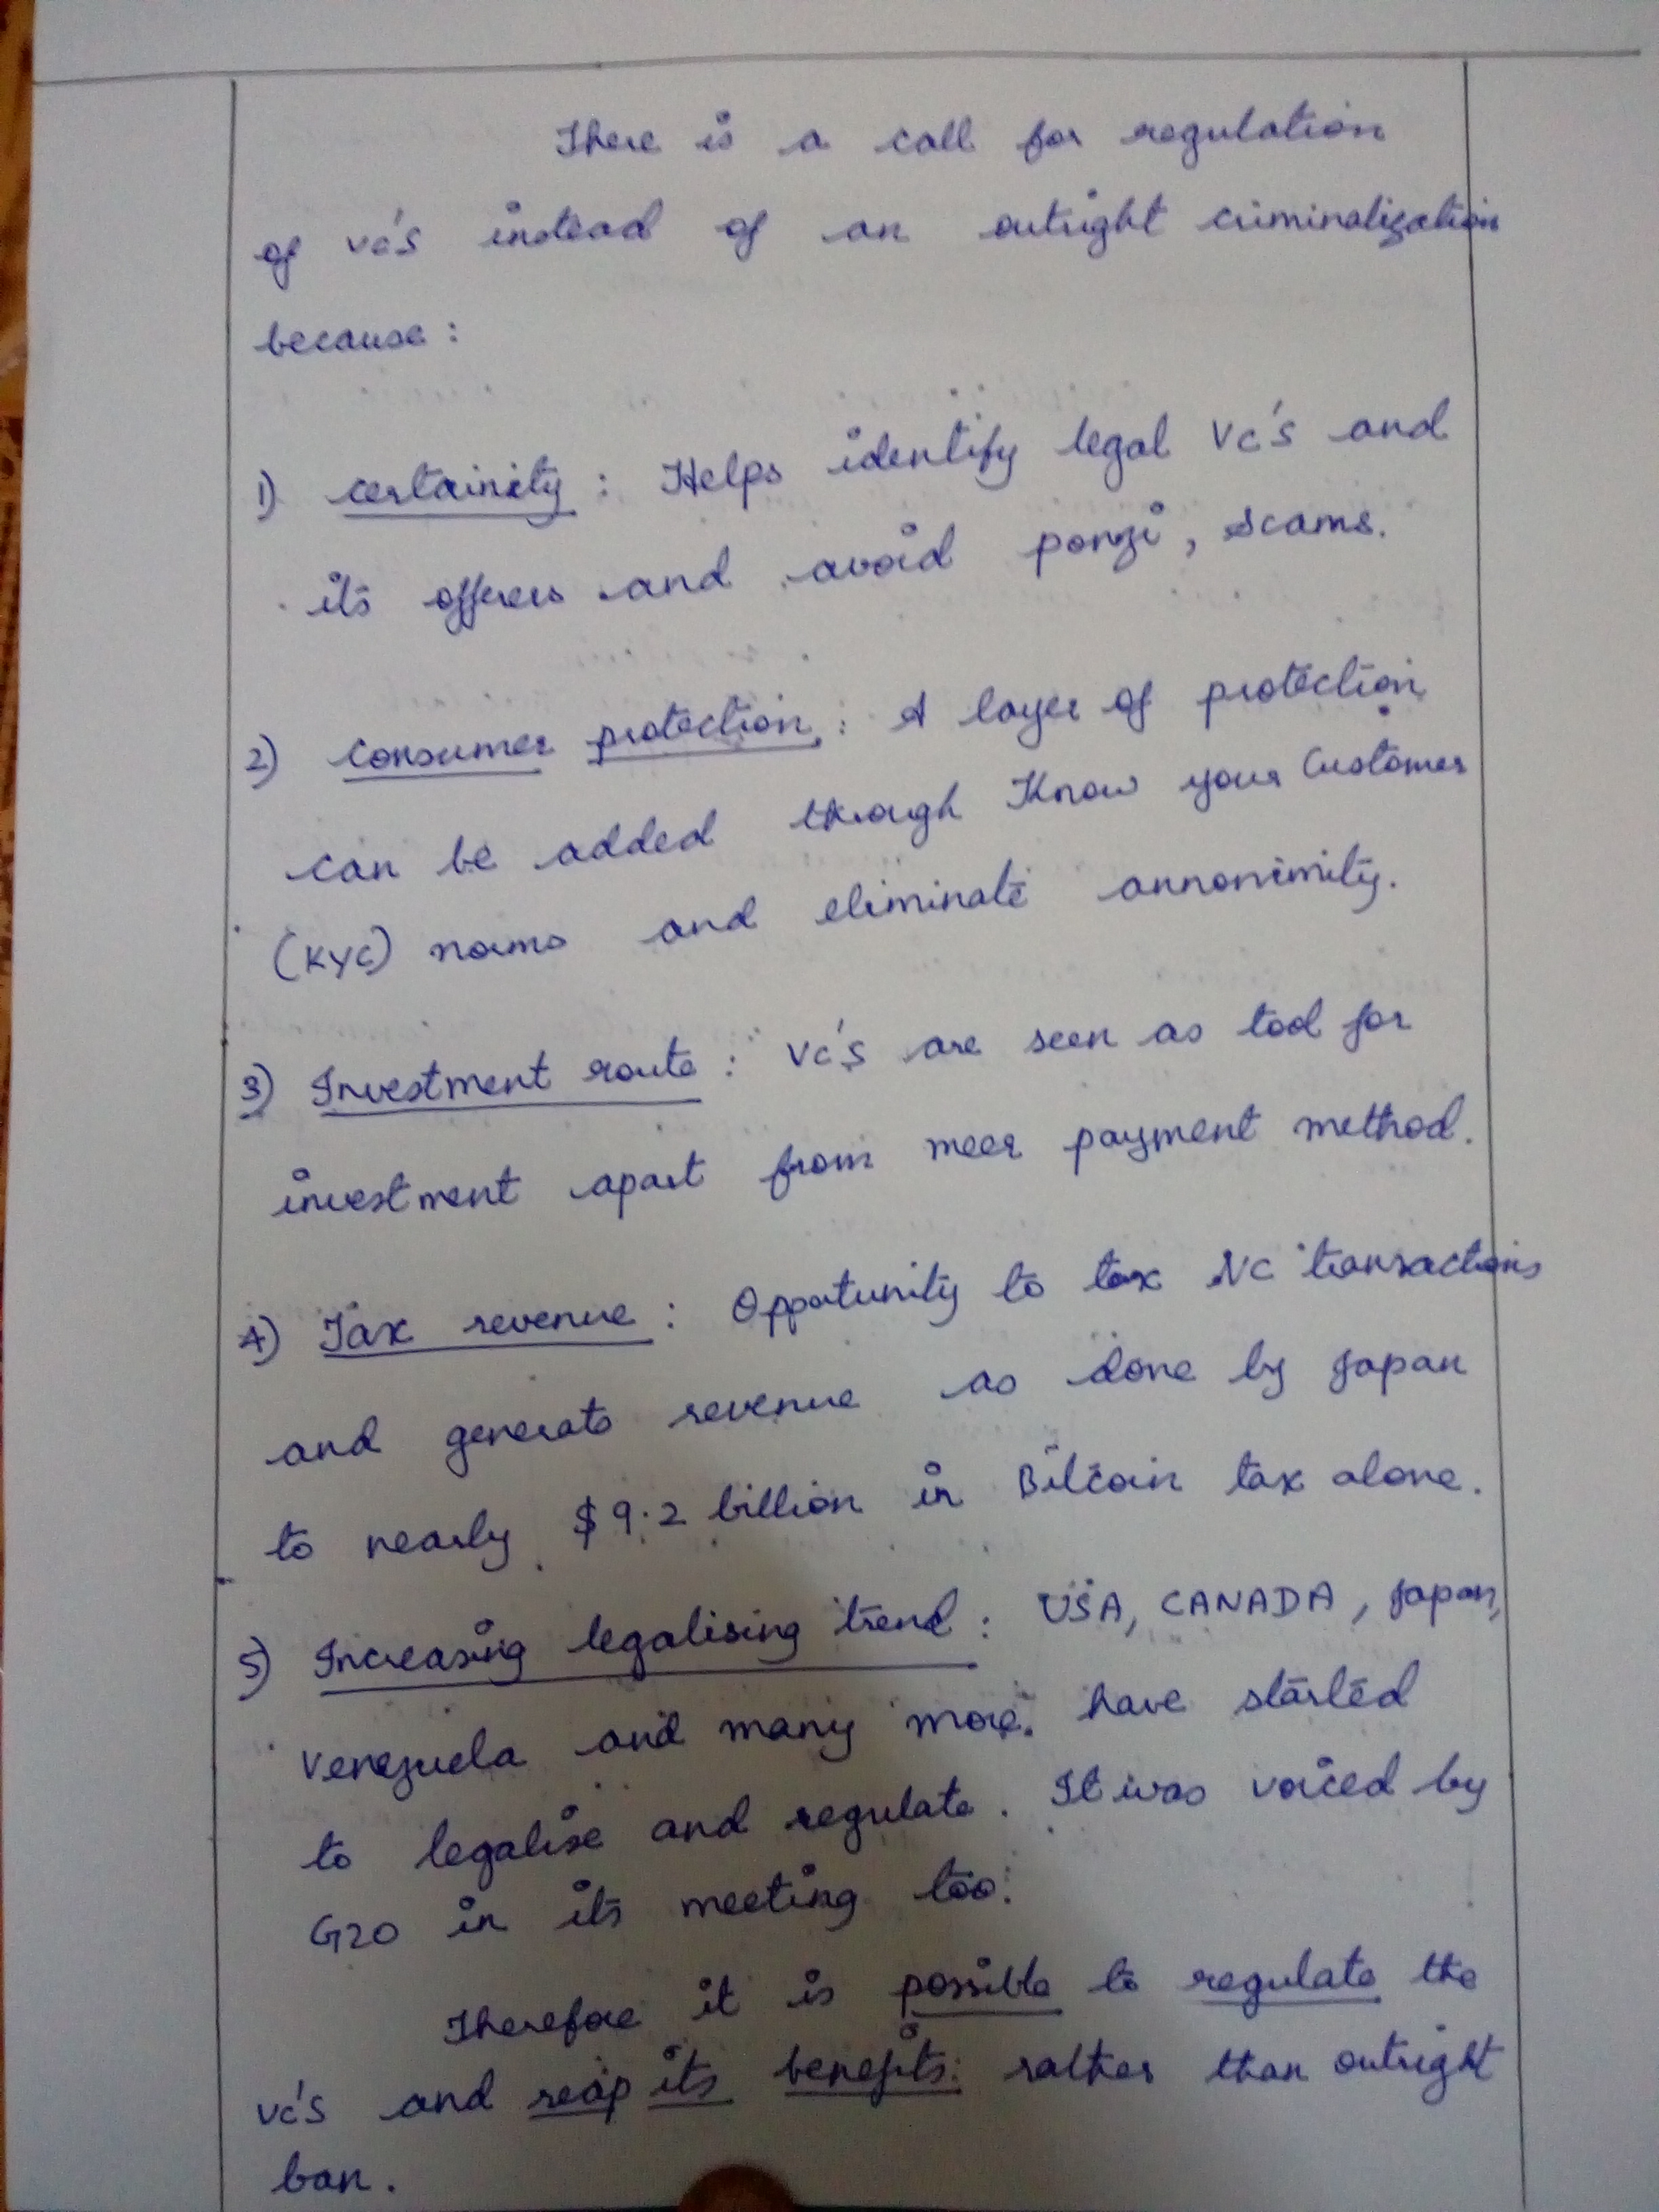 There is a call for regulation
of VC's instead of an outright criminalization
because :
1) certainity : Helps identify legal VC's and
its offerers and avoid ponzi, scams.
2) Consumer protection : A layer of protection
can be added through Know your Customer
(KYC) norms and eliminate annonimity.
3) Investment route : VC's are seen as tool for
investment apart from meer payment method.
4) Tax revenue : Opportunity to tax VC transactions
and generate revenue as done by Japan
to nearly $9.2 billion in Bitcoin tax alone.
5) Increasing legalising trend : USA, CANADA, Japan,
Venezuela and many more. have started
to legalise and regulate. It was voiced by
G20 in its meeting too.
Therefore it is possible to regulate the
VC's and reap its benefits rather than outright
ban.